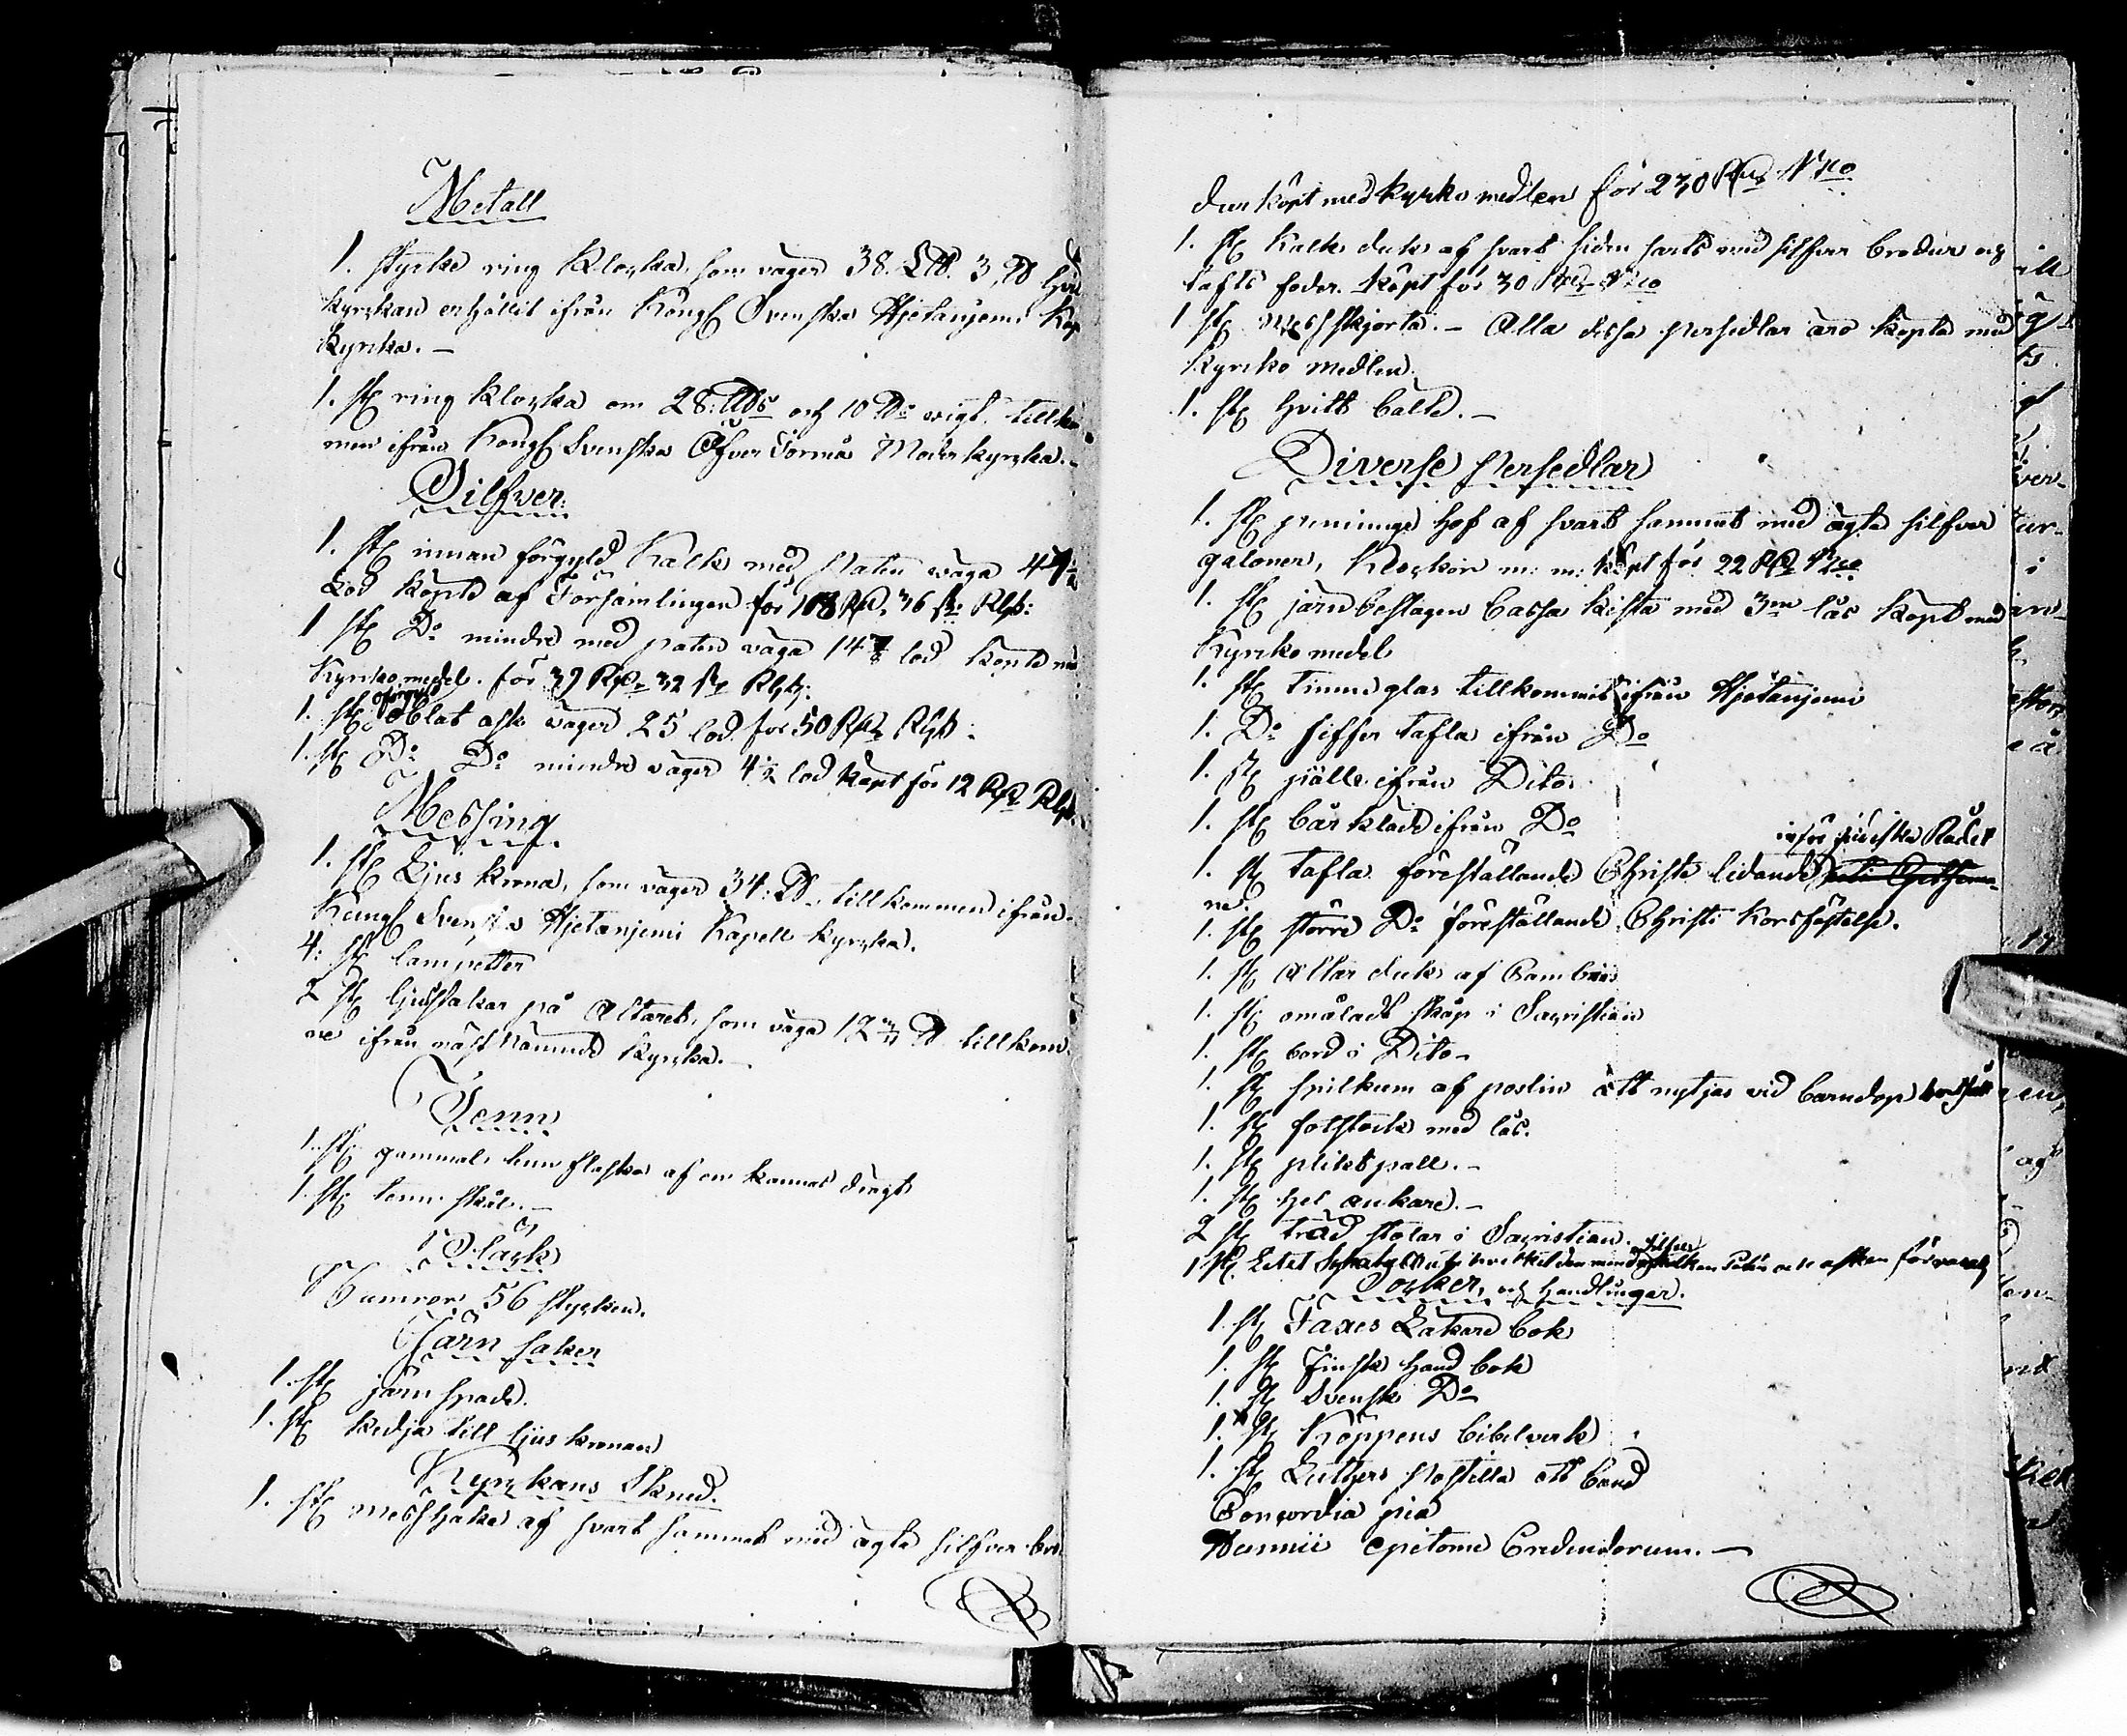 Metall
1. stycke ring Klocka, som väger 38. L℔. 3 ℔ hvil
kyrckan erhållit ifrån Kongl Svenska Hjetanjemi Kap
kyrcka. —
1. st ring Klocka om 28: L℔s och 10 ℔s vigt. tillkom
men ifrån Kongl Svenska Öfver Torneå Moderkyrcka. -
Silfver.
1. st innan förgyld Kalk med Paten väga 47½
Lod köpte af Församlingen för 108 Rd, 36 s: Rgs:
1 st Do mindre med paten väga 14⅞ lod köpte med
Kyrko medel. för 39 Rd 32 s Rgs.
oförgyld
1. st oblat ask väger 25 lod för 50 Rd Rgs:
1. st Do Do mindre väger 4½ lod köpt för 12 Rd Rgs.
Messing
1. st Ljus krona, som väger 34: ℔. tillkommen ifrån
Kungl Svenska Hjetanjemi Kapell kyrcka.
4: st lampetter
2 st ljusstakar på Altaret, som väga 12¾ ℔ tillkom-
ne ifrån näst nämnde kyrcka. —
Tenn
1. st gammal tenn flaska af en kannas drägt
1. st tenn skål. —
Bläck
Numror 56 stycken.
Järn saker
1. st järn spade.
1. st kedja till ljus kronan
Kyrckans Skrud.
1. st messhake af svart sammet med ägta silfver bro-
dur köpt med kyrko medlen för 230 Rd Rgs
1. st Kalk duk af svart siden sarts med silfver brodur och
tafts foder. köpt för 30 Rd Rgs
1 st messskjorta. - Alla dessa persedlar äro köpta med
kyrko medlen.
1. st hvitt bälte. —
Diverse persedlar
1. st pennings håf af svart sammet med ägta silfver
galoner, klockor m: m: köpt för 22 Rd Rgs
1. st järnbeslagen Cassa kista med 3ne lås köpt med
Kyrcko medel
1. st Timme glas tillkommit ifrån Hjetanjemi
1. Do siffer tafla ifrån Do
1. st pälle ifrån Dito.
1. st bår kläde ifrån Do
inför judiska Rådet
1. st tafla föreställande Christi lidande uti Gethsema-
ne.
1. st större Do föreställande Christi korsfästelse.
1. st Altar duk af Cambric
1. st omåladt skåp i Sacristian
1. st bord i Dito —
1. st spilkum af poslin att nytjas vid barndop
1. st fotstock med lås.
1. st plikt pall. —
1. st hel ankare. —
2 st träd stolar i Sacristian.
silfver
1 st. Litet hvit den mindre kalken Patén och asken förvaras
Böcker, och handlingar.
1. st Faxes Läkare bok
1. st Finsk hand bok
1. st Svensk Do
1. st Köppens bibelverk
1. st Luthers Postilla ett band
Concordia pia
Nunnii epitome Credendorum. —